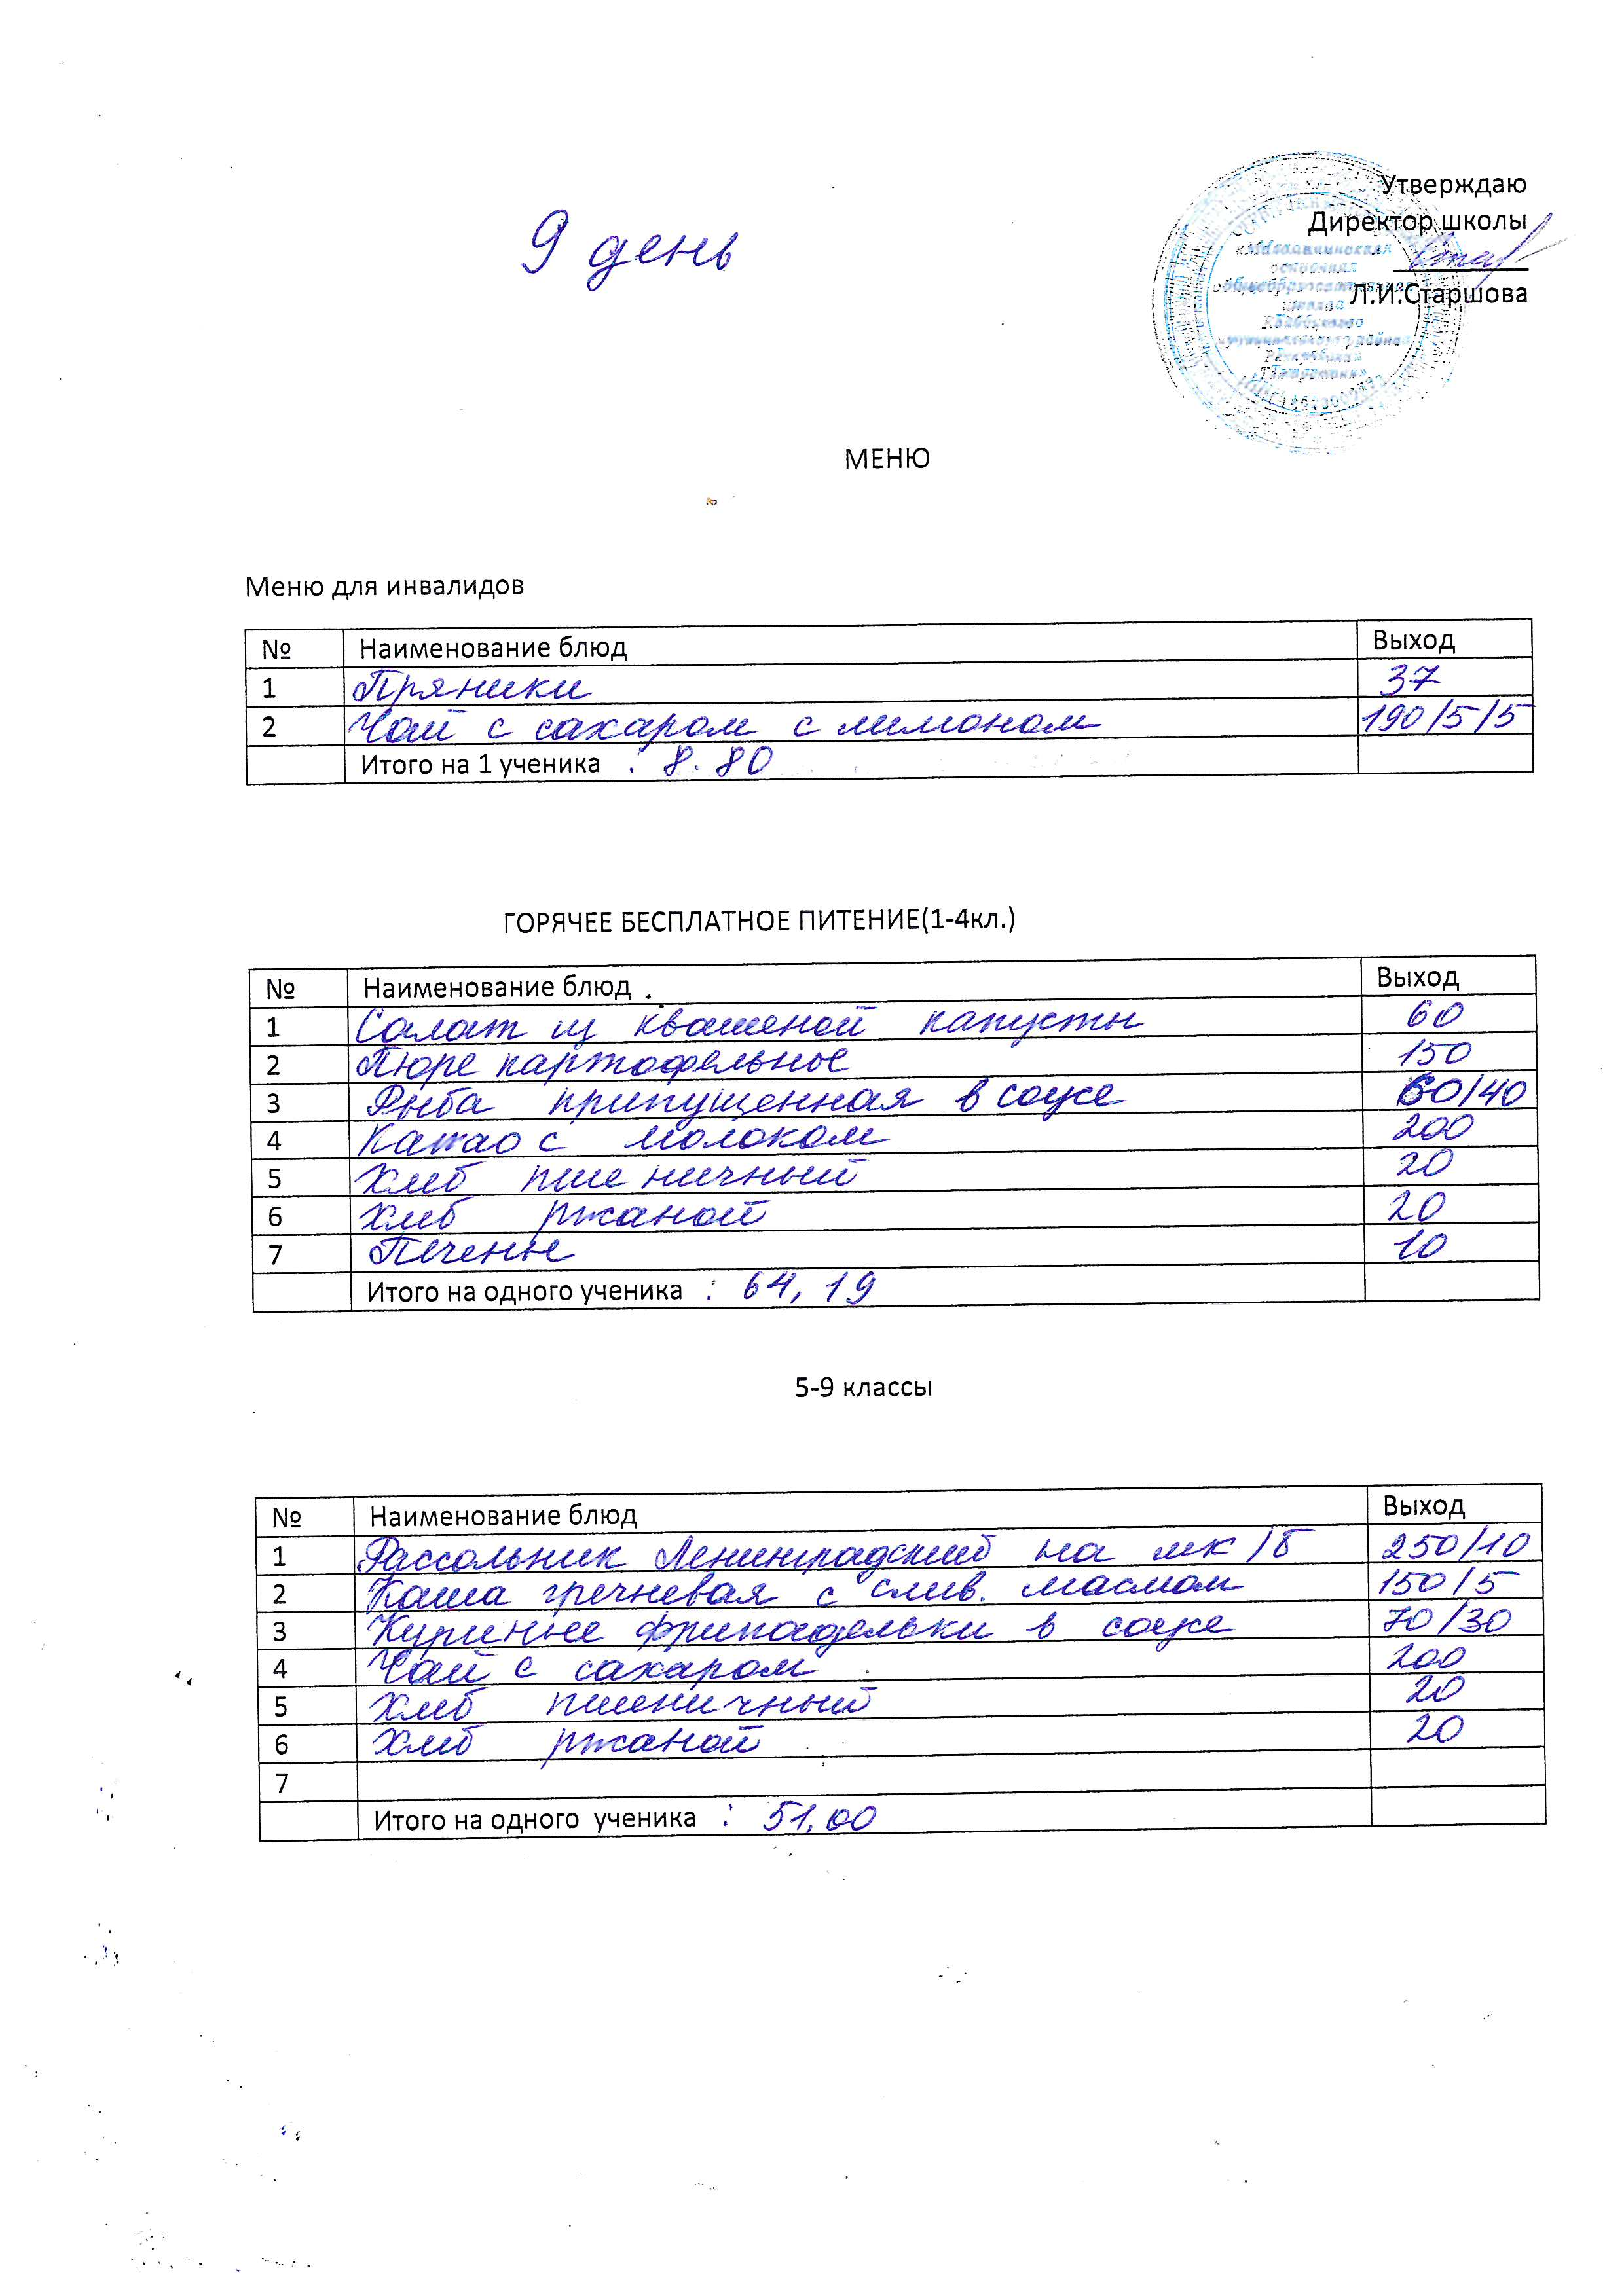 Утверждаю
Директор школы
9 день
Л.И.Старшова
МЕНЮ
Меню для инвалидов
№ Наименование блюд Выход
1 Пряники 37
2 Чай с сахаром с лимоном 190/5/5
Итого на 1 ученика : 8.80
ГОРЯЧЕЕ БЕСПЛАТНОЕ ПИТЕНИЕ(1-4кл.)
№ Наименование блюд . Выход
1 Салат из квашеной капусты 60
2 Пюре картофельное 150
3 Рыба припущенная в соусе 60/40
4 Какао с молоком 200
5 Хлеб пшеничный 20
6 Хлеб ржаной 20
7 Печенье 10
Итого на одного ученика : 64,19
5-9 классы
№ Наименование блюд Выход
1 Рассольник Ленинградский на мк/б 250/10
2 Каша гречневая с слив. маслом 150/5
3 Куриные фрикадельки в соусе 70/30
4 Чай с сахаром 200
5 Хлеб пшеничный 20
6 Хлеб ржаной 20
7
Итого на одного ученика : 51,00